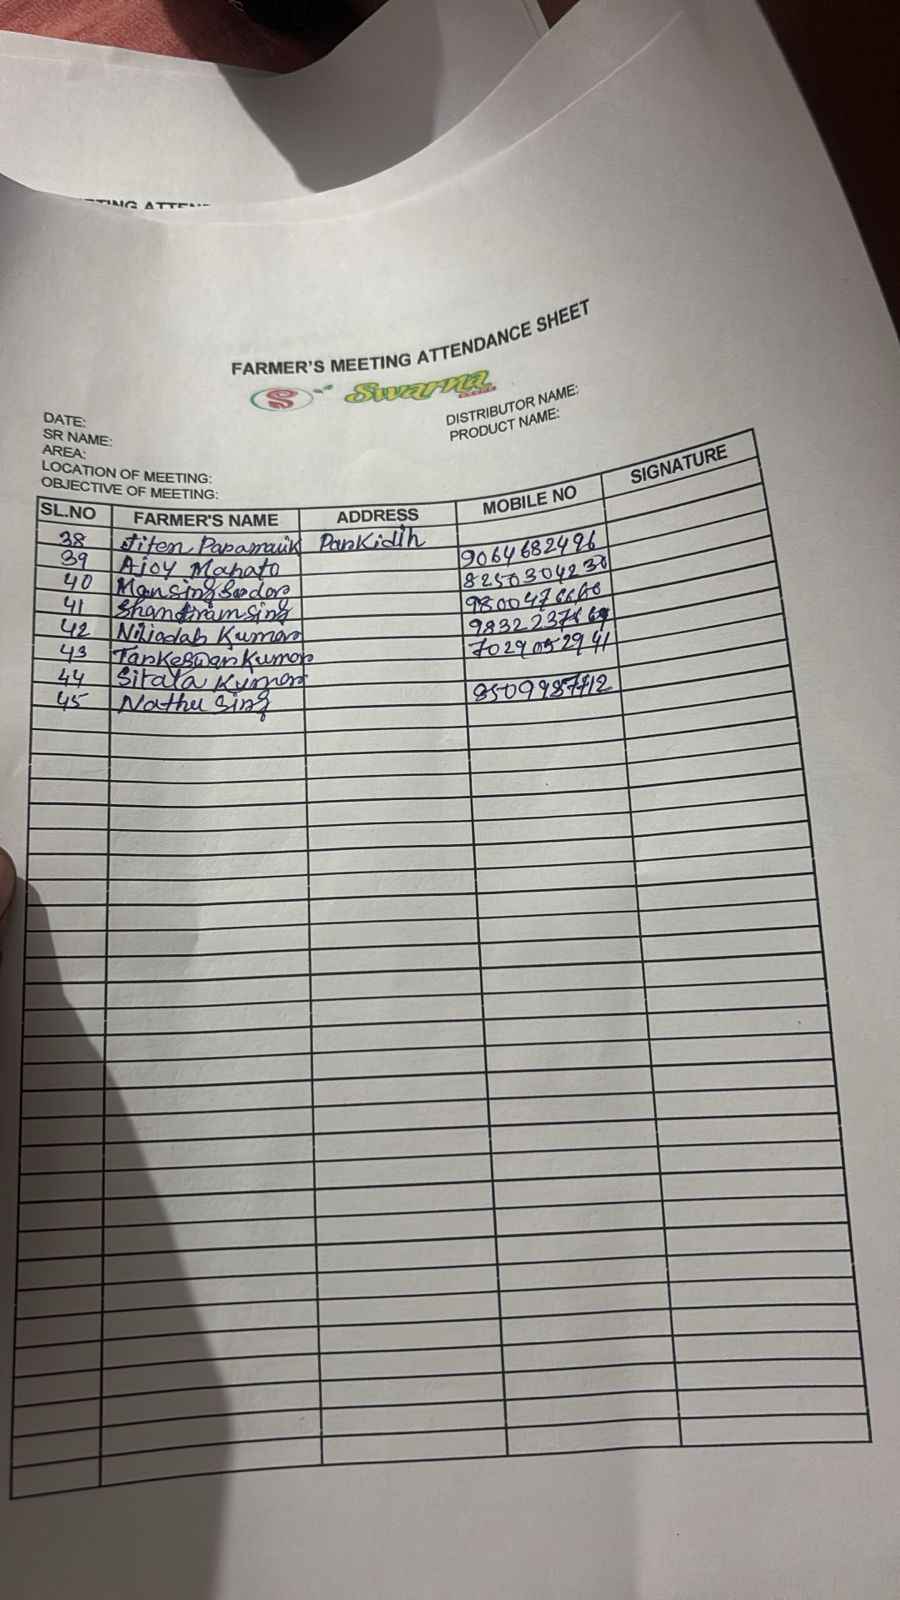 TING ATTEN
FARMER'S MEETING ATTENDANCE SHEET
S Swarna
DATE:
SR NAME:
AREA:
LOCATION OF MEETING:
OBJECTIVE OF MEETING:
DISTRIBUTOR NAME:
PRODUCT NAME:
SL.NO FARMER'S NAME ADDRESS MOBILE NO SIGNATURE
38 Jiten Paramanik Parkidih
39 Ajoy Mahato 9064682496
40 Mansing 8250304230
41 9800476660
42 Kumar
43 Tarkeswar Kumar 7029052941
44 Sitala Kumar
45 Nathu Sing 8509987712